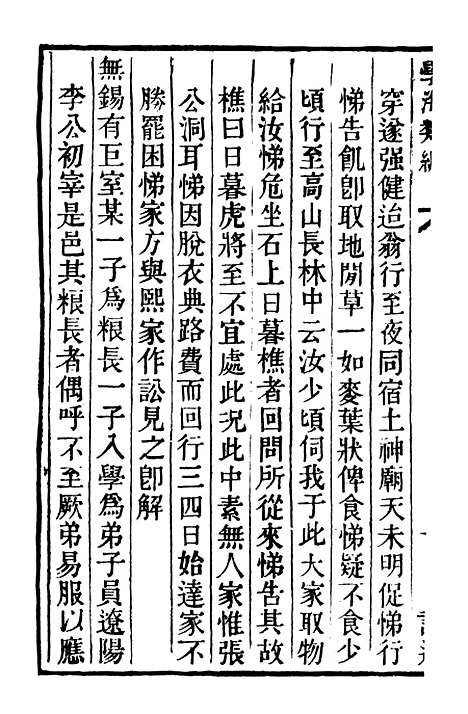 學海類編
穿遂强健迨翁行至夜同宿土神廟天未明促悌行
悌告飢卽取地閒草一如麥葉狀俾食悌疑不食少
頃行至高山長林中云汝少頃伺我于此大家取物
給汝悌危坐石上日暮樵者回問所從來悌告其故
樵曰日暮虎將至不宜處此况此中素無人家惟張
公洞耳悌因脫衣典路費而回行三四日始達家不
勝罷困悌家方與熙家作訟見之卽解
無錫有巨室某一子爲粮長一子入學爲弟子員遼陽
李公初宰是邑其粮長者偶呼不至厥弟易服以應